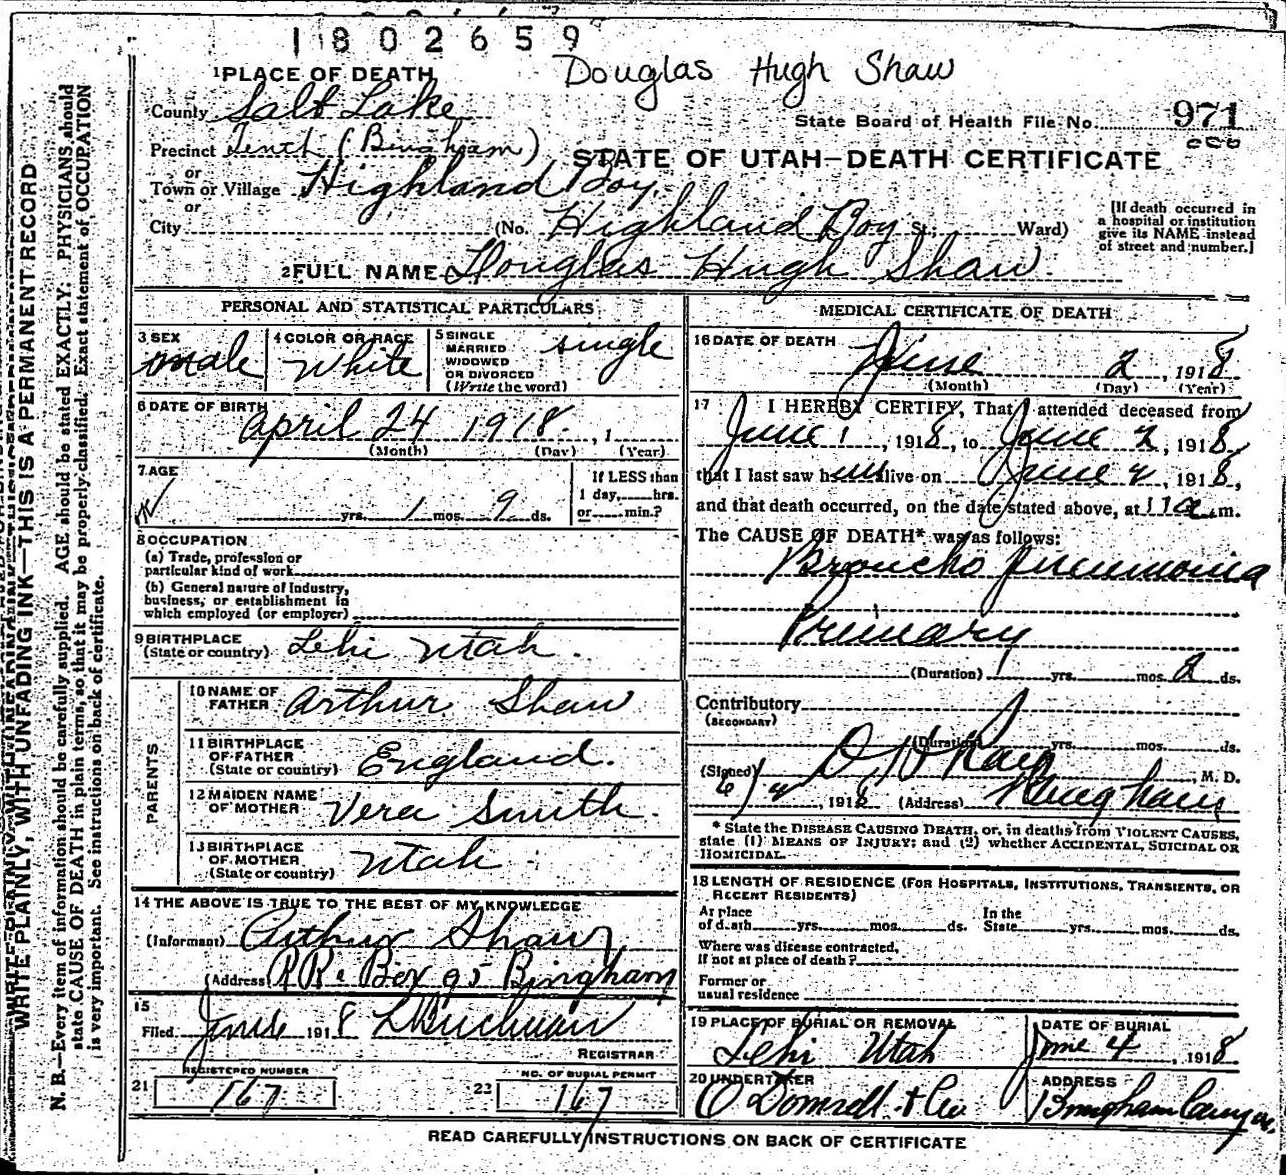 1802659
Douglas Hugh Shaw
1 PLACE OF DEATH
County Salt Lake
State Board of Health File No. 971
Precinct Tenth (Bingham)
STATE OF UTAH—DEATH CERTIFICATE
or
Town or Village Highland Boy
or
City (No. Highland Boy St.; Ward)
[If death occurred in a hospital or institution give its NAME instead of street and number.]
2 FULL NAME Douglas Hugh Shaw
PERSONAL AND STATISTICAL PARTICULARS
3 SEX male
4 COLOR OR RACE White
5 SINGLE MARRIED WIDOWED OR DIVORCED (Write the word) single
6 DATE OF BIRTH April 24 1918, 1
(Month) (Day) (Year)
7 AGE
yrs. 1 mos. 9 ds.
If LESS than 1 day, hrs. or min.?
8 OCCUPATION
(a) Trade, profession or
particular kind of work
(b) General nature of industry,
business, or establishment in
which employed (or employer)
9 BIRTHPLACE
(State or country) Lehi Utah.
PARENTS
10 NAME OF FATHER Arthur Shaw
11 BIRTHPLACE OF FATHER (State or country) England.
12 MAIDEN NAME OF MOTHER Vera Smith.
13 BIRTHPLACE OF MOTHER (State or country) Utah
14 THE ABOVE IS TRUE TO THE BEST OF MY KNOWLEDGE
(Informant) Arthur Shaw
(Address) Box 95 Bingham
15
Filed June 1918 Buchman
REGISTRAR
21 REGISTERED NUMBER 167
22 NO. OF BURIAL PERMIT 167
MEDICAL CERTIFICATE OF DEATH
16 DATE OF DEATH
June 2, 1918
(Month) (Day) (Year)
17 I HEREBY CERTIFY, That I attended deceased from
June 1, 1918, to June 2, 1918
that I last saw him alive on June 2, 1918,
and that death occurred, on the date stated above, at 11 a.m.
The CAUSE OF DEATH* was as follows:
Broncho pneumonia
Primary
(Duration) yrs. mos. 2 ds.
Contributory
(SECONDARY)
(Duration) yrs. mos. ds.
(Signed) M. D.
6/4, 1918 (Address) Bingham
* State the DISEASE CAUSING DEATH, or, in deaths from VIOLENT CAUSES,
state (1) MEANS OF INJURY; and (2) whether ACCIDENTAL, SUICIDAL OR
HOMICIDAL.
18 LENGTH OF RESIDENCE (FOR HOSPITALS, INSTITUTIONS, TRANSIENTS, OR
RECENT RESIDENTS)
At place of death yrs. mos. ds. In the State yrs. mos. ds.
Where was disease contracted,
if not at place of death?
Former or
usual residence
19 PLACE OF BURIAL OR REMOVAL Lehi Utah
DATE OF BURIAL June 4, 1918
20 UNDERTAKER O'Donnell & Co
ADDRESS Bingham Canyon,
READ CAREFULLY INSTRUCTIONS ON BACK OF CERTIFICATE
WRITE PLAINLY, WITH UNFADING INK—THIS IS A PERMANENT RECORD
N. B.—Every item of information should be carefully supplied. AGE should be stated EXACTLY. PHYSICIANS should
state CAUSE OF DEATH in plain terms, so that it may be properly classified. Exact statement of OCCUPATION
is very important. See instructions on back of certificate.